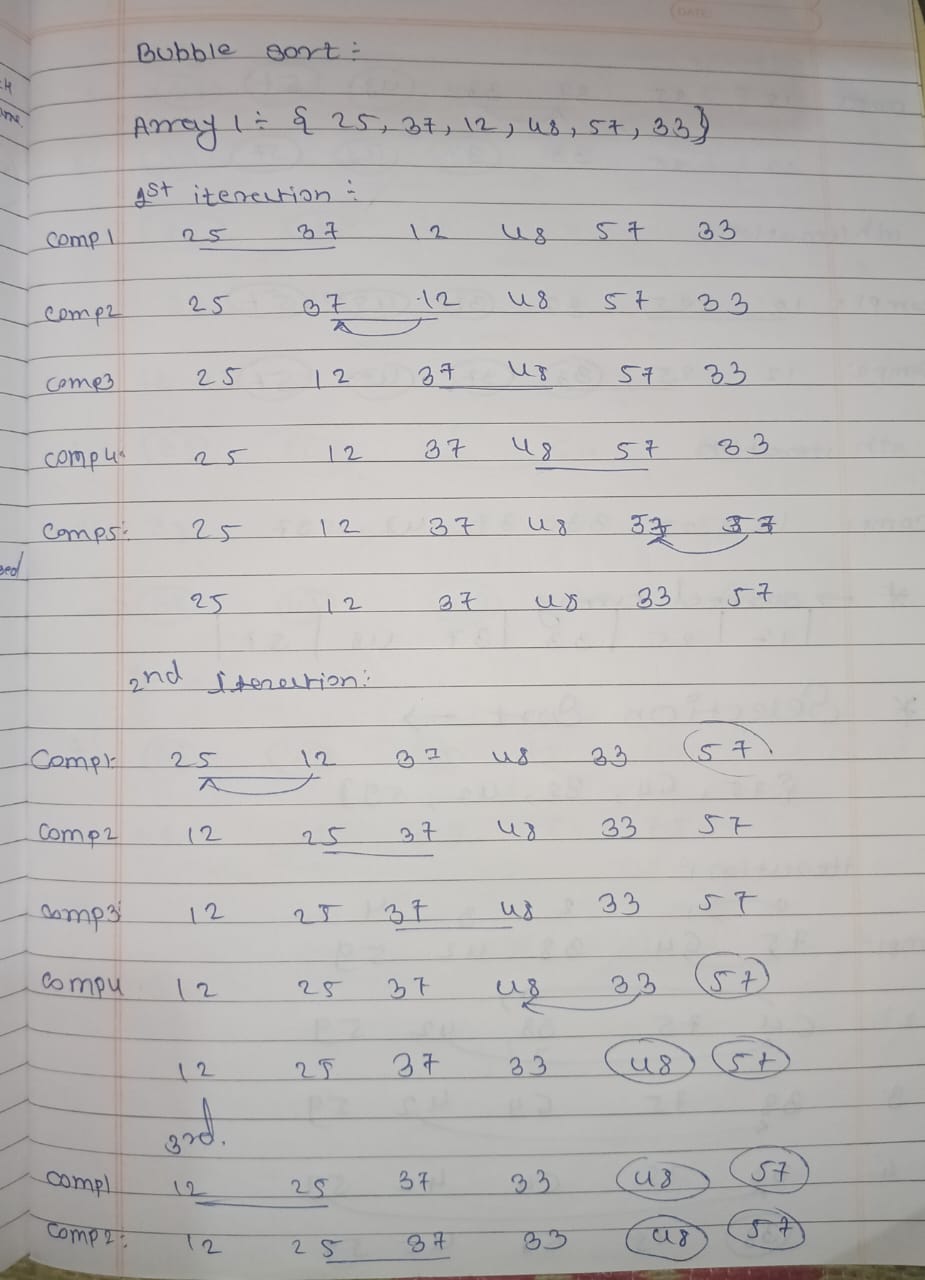 Bubble sort:
Array 1 : { 25, 37, 12, 48, 57, 33}
1st iteration :
comp1 25 37 12 48 57 33
comp2 25 37 12 48 57 33
comp3 25 12 37 48 57 33
comp4: 25 12 37 48 57 33
comp5: 25 12 37 48
25 12 37 48 33 57
2nd iteration:
Comp1: 25 12 37 48 33 57
comp2 12 25 37 48 33 57
comp3: 12 25 37 48 33 57
comp4 12 25 37 48 33 57
12 25 37 33 48 57
3rd.
comp1 12 25 37 33 48 57
comp2: 12 25 37 33 48 57